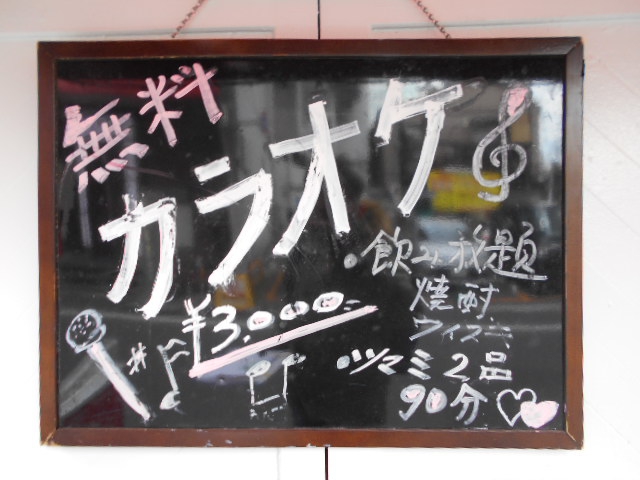 無料
カラオケ
¥3,000-
・飲み放題
焼酎
ウイスキー
・ツマミ2品
90分